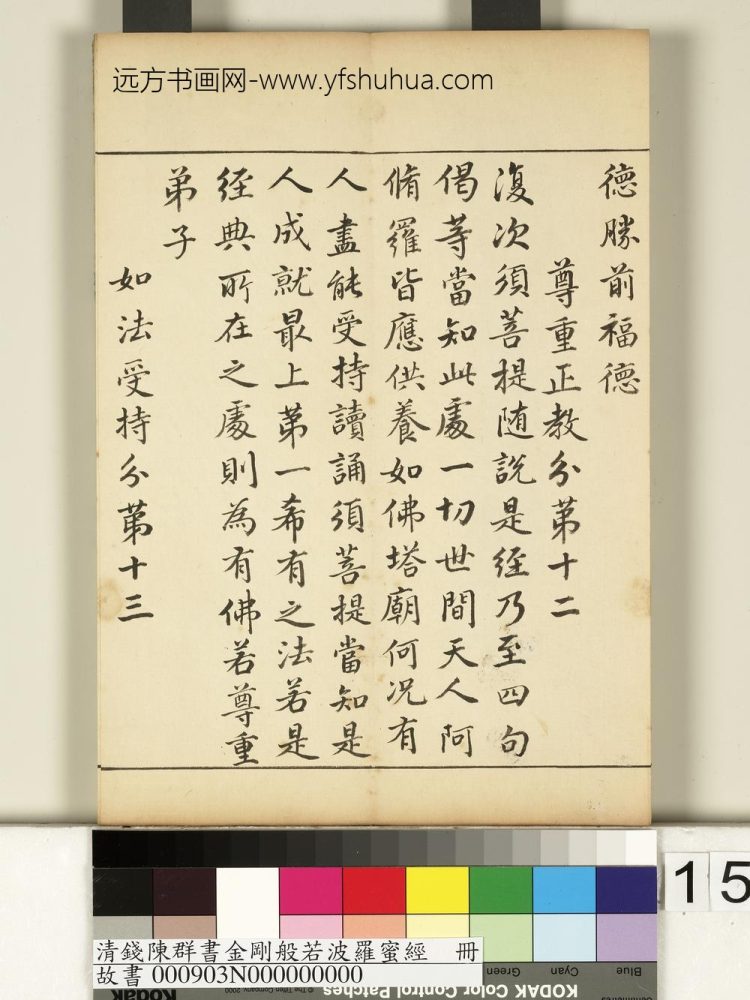 远方书画网-www.yfshuhua.com
德勝前福德
尊重正教分第十二
復次須菩提随說是經乃至四句
偈等當知此處一切世間天人阿
脩羅皆應供養如佛塔廟何况有
人盡能受持讀誦須菩提當知是
人成就最上第一希有之法若是
經典所在之處則為有佛若尊重
弟子
如法受持分第十三
15
清錢陳群書金剛般若波羅蜜經 冊
故書 000903N000000000
Green
Cyan
Blue
© The Tiffen Company, 2000
Kodak
KODAK Color Control Patches